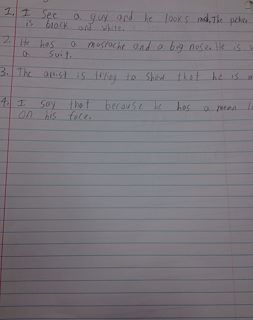 1. I see a guy and he looks mad. The picture
is black and white.
2. He has a mostache and a big nose. He is
a suit.
3. The artist is trying to show that he is
4. I say that because he has a mean
on his face.